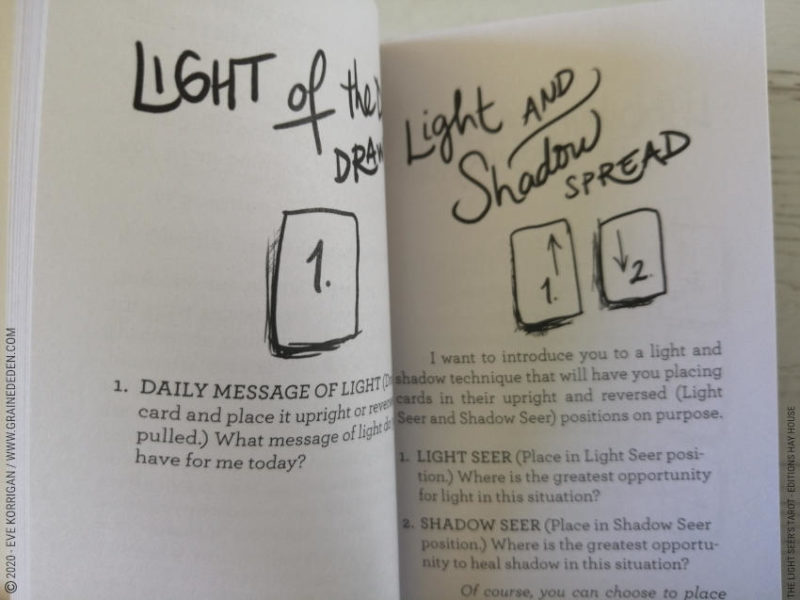 LIGHT of the
DRAW
1.
1. DAILY MESSAGE OF LIGHT
card and place it upright or
pulled.) What message of light
have for me today?
Light AND
Shadow
SPREAD
1.
2.
I want to introduce you to a light and
shadow technique that will have you placing
cards in their upright and reversed (Light
Seer and Shadow Seer) positions on purpose.
1. LIGHT SEER (Place in Light Seer posi-
tion.) Where is the greatest opportunity
for light in this situation?
2. SHADOW SEER (Place in Shadow Seer
position.) Where is the greatest opportu-
nity to heal shadow in this situation?
Of course, you can choose to place
© 2020 - EVE KORRIGAN / WWW.GRAINEDEDEN.COM
THE LIGHT SEER'S TAROT - EDITIONS HAY HOUSE